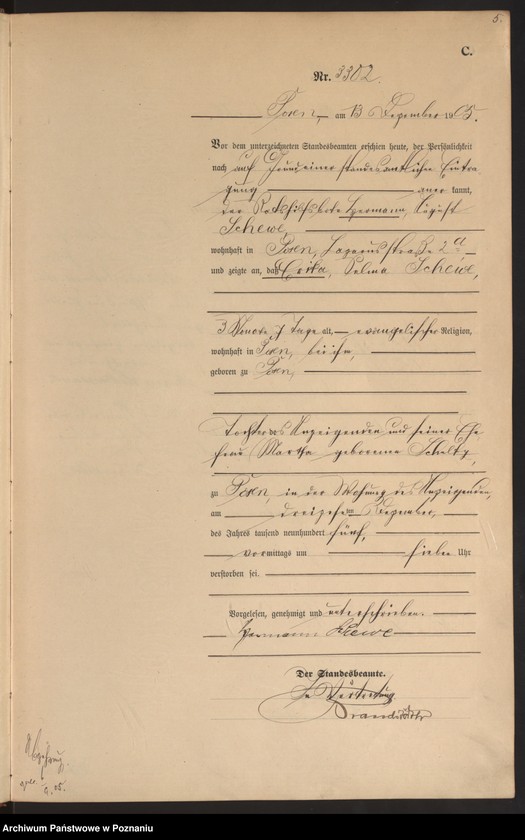 5.
C.
Nr. 3302.
Posen, am 13 Dezember 1905.
Vor dem unterzeichneten Standesbeamten erschien heute, der Persönlichkeit
nach auf Grund einer standesamtlichen Eintra
gung aner kannt,
der Hermann, August
Schewe,
wohnhaft in Posen, Lazarusstraße 2a
und zeigte an, daß Erika, Selma Schewe,
3 Monate 7 Tage alt, evangelischer Religion,
wohnhaft in Posen, bei ihm,
geboren zu Posen,
Tochter des Anzeigenden und seiner Ehe
frau Martha geborenen Schultz,
zu Posen, in der Wohnung des Anzeigenden,
am dreizehnten Dezember,
des Jahres tausend neunhundert fünf,
vormittags um sieben Uhr
verstorben sei.
Vorgelesen, genehmigt und unterschrieben.
Hermann Schewe
Der Standesbeamte.
In Vertretung
Archiwum Państwowe w Poznaniu